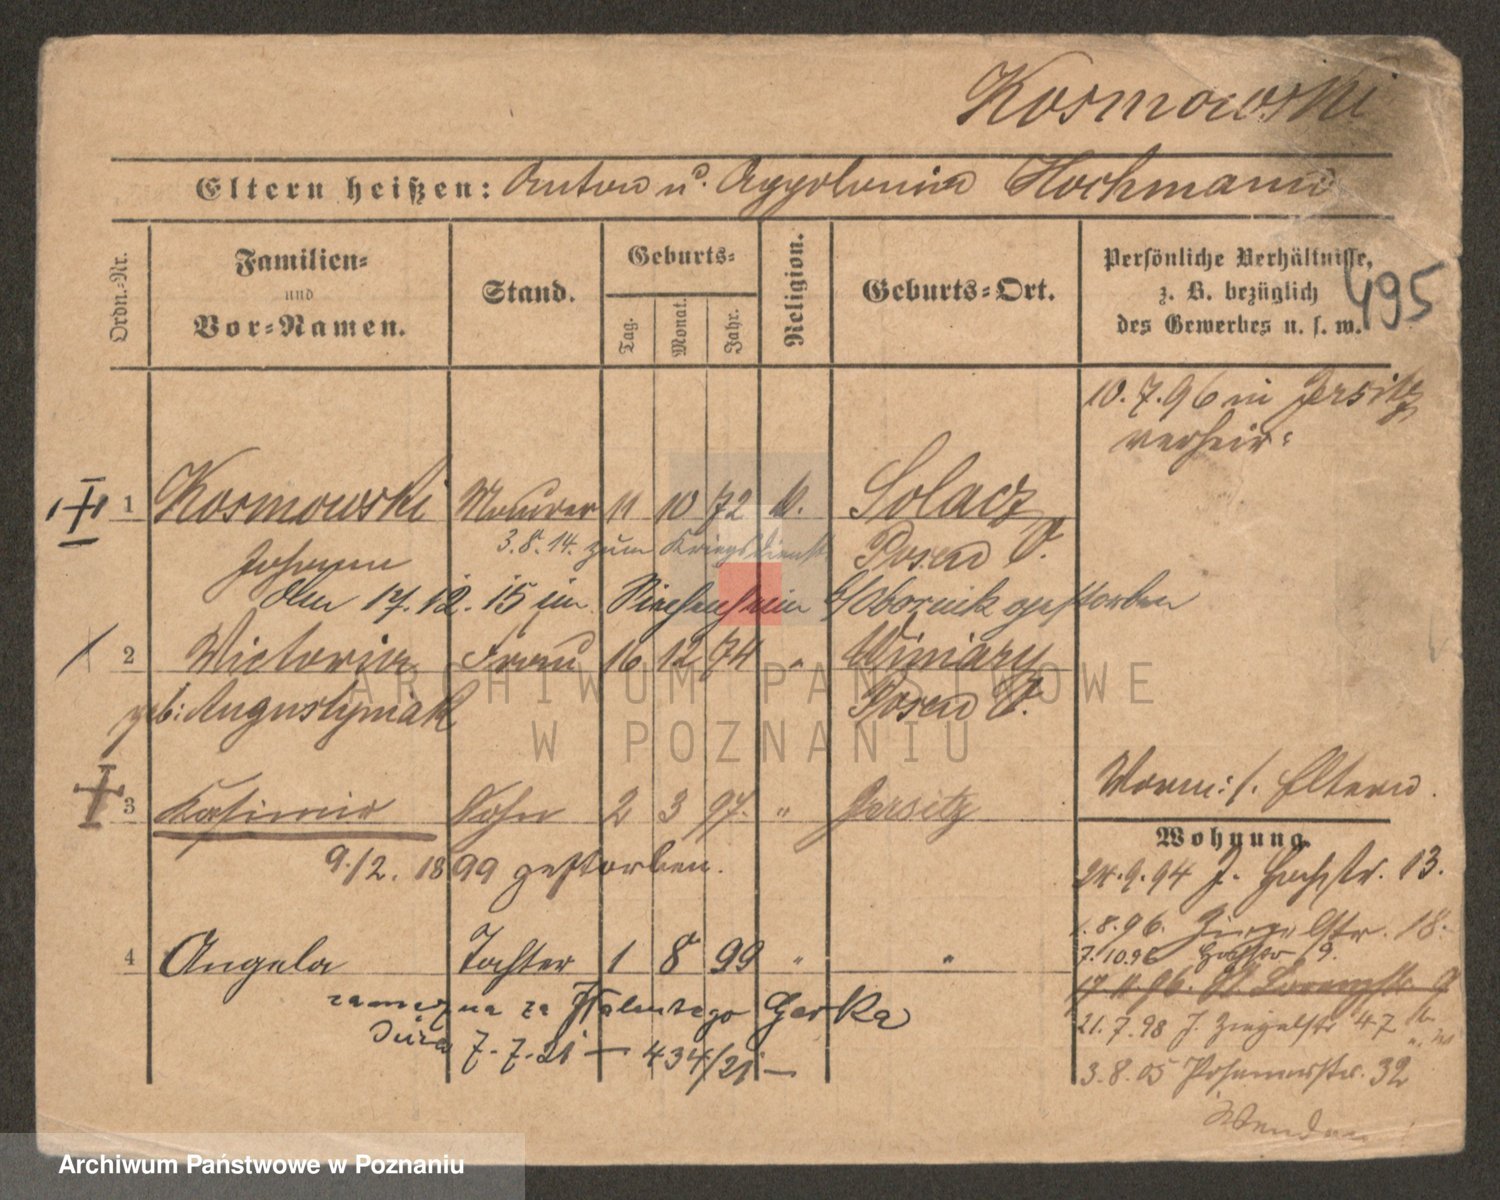 Kosmowski
Eltern heißen: Anton u. Appolonia Hochmann
Ordn.-Nr.
Familien-
und
Vor-Namen.
Stand.
Geburts-
Tag.
Monat.
Jahr.
Religion.
Geburts-Ort.
Persönliche Verhältnisse,
z. B. bezüglich
des Gewerbes u. s. w.
495
10.7.96 in Jersitz
verheir:
1 Kosmowski Maurer 11 10 72 k. Solacz
3.8.14. zum Kriegsdienst
Johann Posen O.
Am 17.12.15 im b/Obornik gestorben
2 Victoria Frau 16 12 74 " Winiary
geb: Augustyniak Posen O.
3 Kasimir Sohn 2 3 97. " Jersitz
Worm: s. Eltern.
9./2. 1899 gestorben.
Wohnung.
24.9.94 J. Hochstr. 13.
1.8.96. 18.
7.10.96 9.
4 Angela Tochter 1 8 99 " "
17.11.96. St. Lorenzstr. 9
zamężna za Walentego Gerka
21.7.98 J. Ziegelstr 47
7.7.21 — 434/21 —
3.8.05 Posenerstr. 32
Wenden!
ARCHIWUM PAŃSTWOWE
W POZNANIU
Archiwum Państwowe w Poznaniu